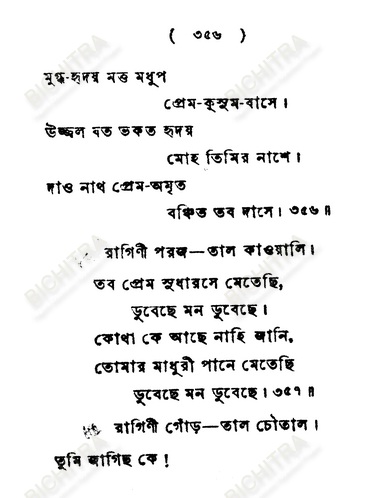 ( ৩৫৬ )
মুগ্ধ-হৃদয় মত্ত মধুপ
প্রেম-কুসুম-বাসে।
উজ্জ্বল যত ভকত হৃদয়
মোহ তিমির নাশে।
দাও নাথ প্রেম-অমৃত
বঞ্চিত তব দাসে। ৩৫৬॥
রাগিণী পরজ—তাল কাওয়ালি।
তব প্রেম সুধারসে মেতেছি,
ডুবেছে মন ডুবেছে।
কোথা কে আছে নাহি জানি,
তোমার মাধুরী পানে মেতেছি
ডুবেছে মন ডুবেছে। ৩৫৭॥
রাগিণী গোঁড়—তাল চৌতাল।
তুমি জাগিছ কে!
BICHITRA
BICHITRA
BICHITRA
BICHITRA
BICHITRA
BICHITRA